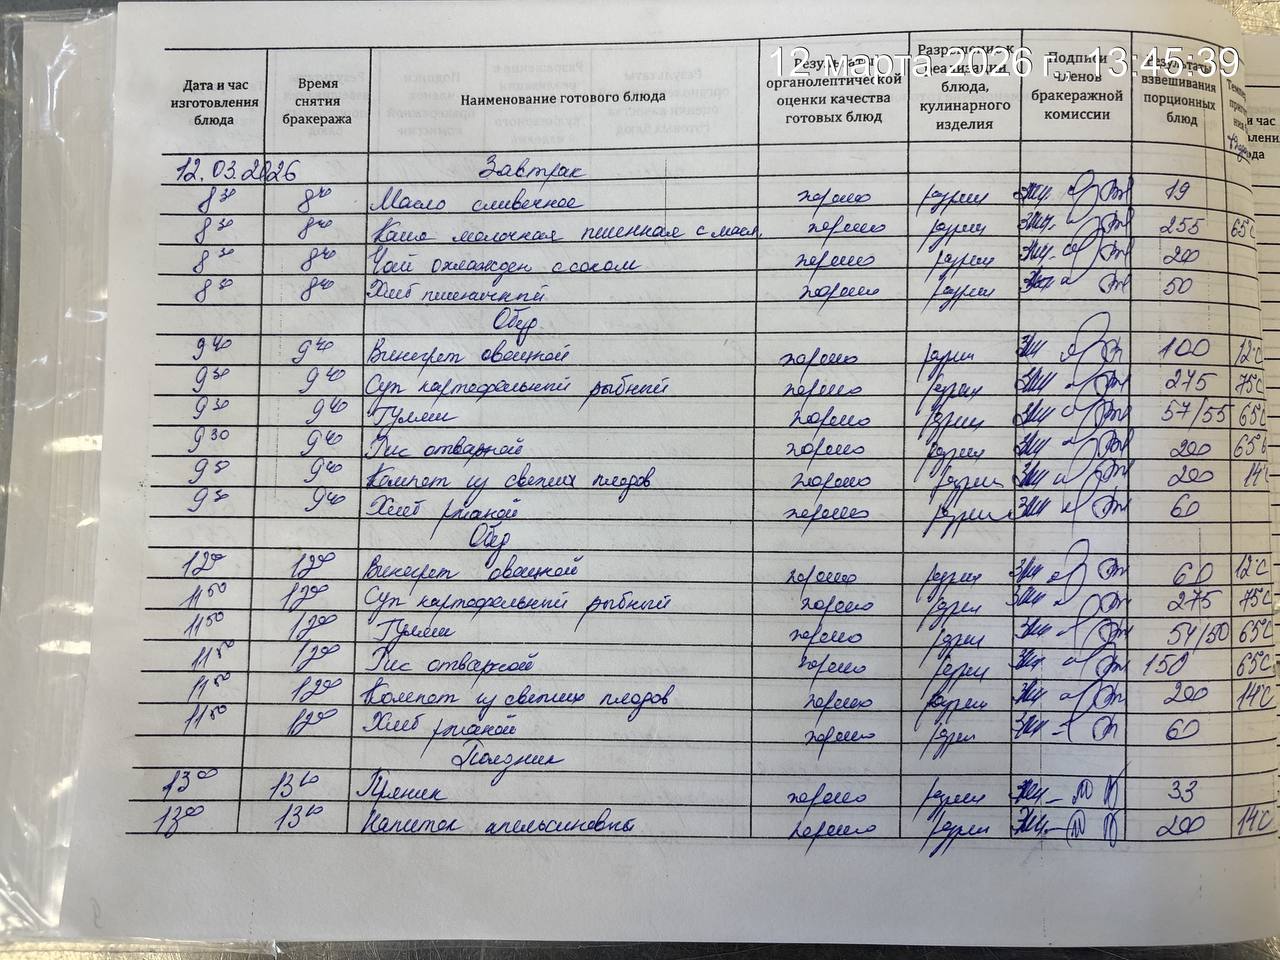 12 марта 2026 г. 13:45:39
Дата и час изготовления блюда | Время снятия бракеража | Наименование готового блюда | Результаты органолептической оценки качества готовых блюд | Разрешение к реализации блюда, кулинарного изделия | Подписи членов бракеражной комиссии | Результаты взвешивания порционных блюд
12.03.2026 Завтрак
8 30 8 40 Масло сливочное хорошо разреш 19
8 30 8 40 Каша молочная пшенная с масл. хорошо разреш 255 65°С
8 30 8 40 Чай охлажден с соком хорошо разреш 200
8 30 8 40 Хлеб пшеничный хорошо разреш 50
Обед
9 40 9 40 Винегрет овощной хорошо разреш 100 12°С
9 30 9 40 Суп картофельный рыбный хорошо разреш 275 75°С
9 30 9 40 Гуляш хорошо разреш 57/55 65°С
9 30 9 40 Рис отварной хорошо разреш 200 65°С
9 30 9 40 Компот из свежих плодов хорошо разреш 200 14°С
9 30 9 40 Хлеб ржаной хорошо разреш 60
Обед
12 00 12 00 Винегрет овощной хорошо разреш 60 12°С
11 50 12 00 Суп картофельный рыбный хорошо разреш 275 75°С
11 50 12 00 Гуляш хорошо разреш 54/50 65°С
11 50 12 00 Рис отварной хорошо разреш 150 65°С
11 50 12 00 Компот из свежих плодов хорошо разреш 200 14°С
11 50 12 00 Хлеб ржаной хорошо разреш 60
Полдник
13 00 13 10 Пряник хорошо разреш 33
13 00 13 10 Напиток апельсиновый хорошо разреш 200 14°С